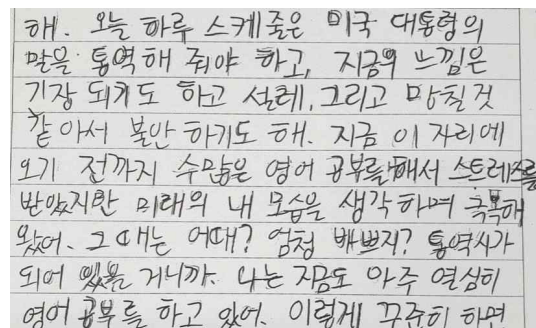 해. 오늘 하루 스케줄은 미국 대통령의
말을 통역해 줘야 하고, 지금의 느낌은
기장 되기도 하고 설레, 그리고 망칠것
같아서 불안 하기도 해. 지금 이 자리에
오기 전까지 수많은 영어 공부를 해서 스트레스를
받았지만 미래의 내 모습을 생각 하며 극복해
왔어. 그 때는 어때? 엄청 바쁘지? 통역사가
되어 있을 거니까. 나는 지금도 아주 열심히
영어 공부를 하고 있어. 이렇게 꾸준히 하면